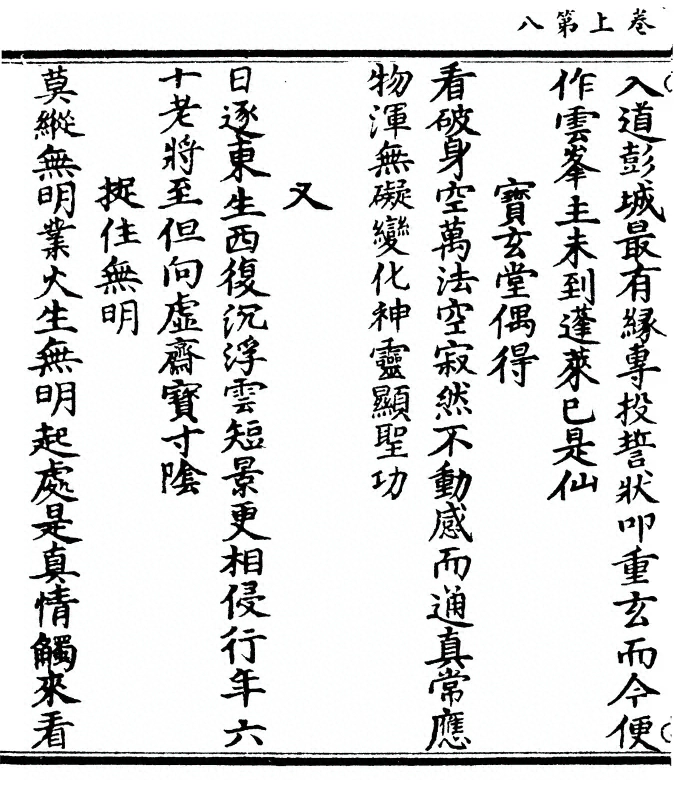 卷上第八
入道彭城最有緣專投誓狀叩重玄而今便
作雲峯主未到蓬萊已是仙
寶玄堂偶得
看破身空萬法空寂然不動感而通真常應
物渾無礙變化神靈顯聖功
又
日逐東生西復沉浮雲短景更相侵行年六
十老將至但向虛齋寶寸陰
捉住無明
莫縱無明業火生無明起處是真情觸來看